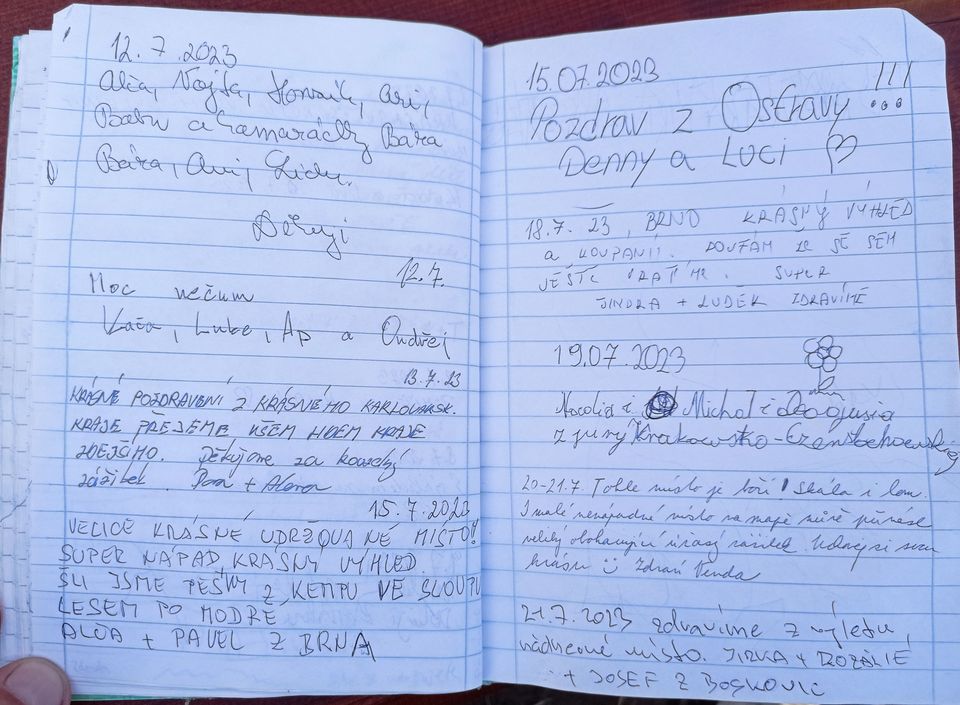 12.7.2023
Alča, Vojta, Honzík, Ari,
Babu a kamarádky Bára
Bára, Ari,
12.7.
Moc nečum
Kača, Luke, Ap a Ondřej
13.7.23
KRÁSNÉ POZDRAVENÍ Z KRÁSNÉHO KARLOVARSK.
KRAJE PŘEJEME VŠEM LIDEM KRAJE
ZDEJŠÍHO. Děkujeme za kouzelný
zážitek. + Alena
15.7.2023
VELICE KRÁSNÉ UDRŽOVANÉ MÍSTO!
SUPER NÁPAD, KRÁSNÝ VÝHLED.
ŠLI JSME PĚŠKY Z KEMPU VE SLOUPU
LESEM PO MODRÉ,
ALČA + PAVEL Z BRNA
15.07.2023
Pozdrav z Ostravy !!!
Denny a Luci
18.7. 23, BRNO KRÁSNÝ VÝHLED
A KOUPÁNÍ. DOUFÁM ŽE SE SEM
JEŠTĚ VRATÍME. SUPER
JINDRA + LUDĚK ZDRAVÍME
19.07.2023
Natalia i Michał i
z jury Krakowsko-Częstochowskiej
20-21.7. Tohle místo je boží! Skála i lom.
I malé nenápadné místo na mapě může přinést
velký obohacující úžasný zážitek.
krásu Zdraví Venda
21.7.2023 zdravíme z výletu,
nádherné místo. JIRKA + ROZÁLIE
+ JOSEF Z BOSKOVIC